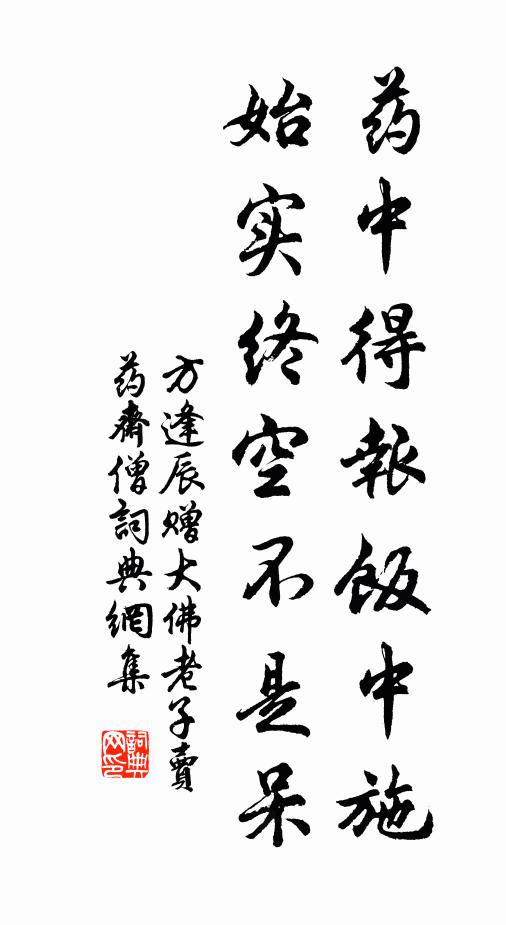 药中得報飯中施
始实终空不是呆
方逢辰赠大佛老子賣
药齋僧詞典網集
詞典
网印